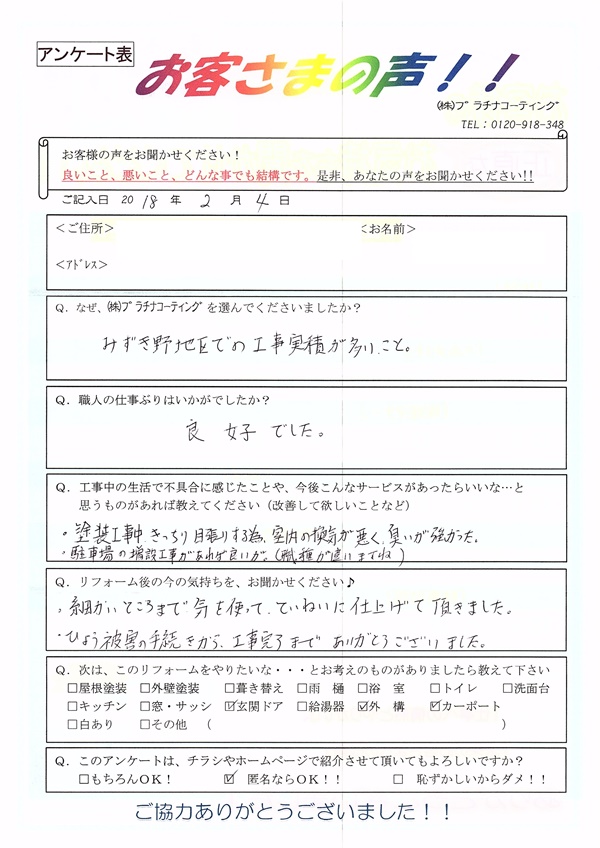 アンケート表
お客さまの声！！
㈱プラチナコーティング
TEL：0120-918-348
お客様の声をお聞かせください！
良いこと、悪いこと、どんな事でも結構です。是非、あなたの声をお聞かせください!!
ご記入日 2018 年 2 月 4 日
＜ご住所＞ ＜お名前＞
＜ｱﾄﾞﾚｽ＞
Q．なぜ、㈱プラチナコーティングを選んでくださいましたか？
みずき野地区での工事実積が多いこと。
Q．職人の仕事ぶりはいかがでしたか？
良好でした。
Q．工事中の生活で不具合に感じたことや、今後こんなサービスがあったらいいな…と
思うものがあれば教えてください（改善して欲しいことなど）
・塗装工事中、きっちり目張りする為、室内の換気が悪く、臭いが強かった。
・駐車場の増設工事があれば良いが。（職種が違いますね）
Q．リフォーム後の今の気持ちを、お聞かせください♪
・細かいところまで気を使って、ていねいに仕上げて頂きました。
・ひょう被害の手続きから、工事完了までありがとうございました。
Q．次は、このリフォームをやりたいな・・・とお考えのものがありましたら教えて下さい
□屋根塗装 □外壁塗装 □葺き替え □雨 樋 □浴 室 □トイレ □洗面台
□キッチン □窓・サッシ ☑玄関ドア □給湯器 ☑外 構 ☑カーポート
□白あり □その他 （ ）
Q．このアンケートは、チラシやホームページで紹介させて頂いてもよろしいですか？
□もちろんOK！ ☑ 匿名ならOK！！ □ 恥ずかしいからダメ！！
ご協力ありがとうございました！！